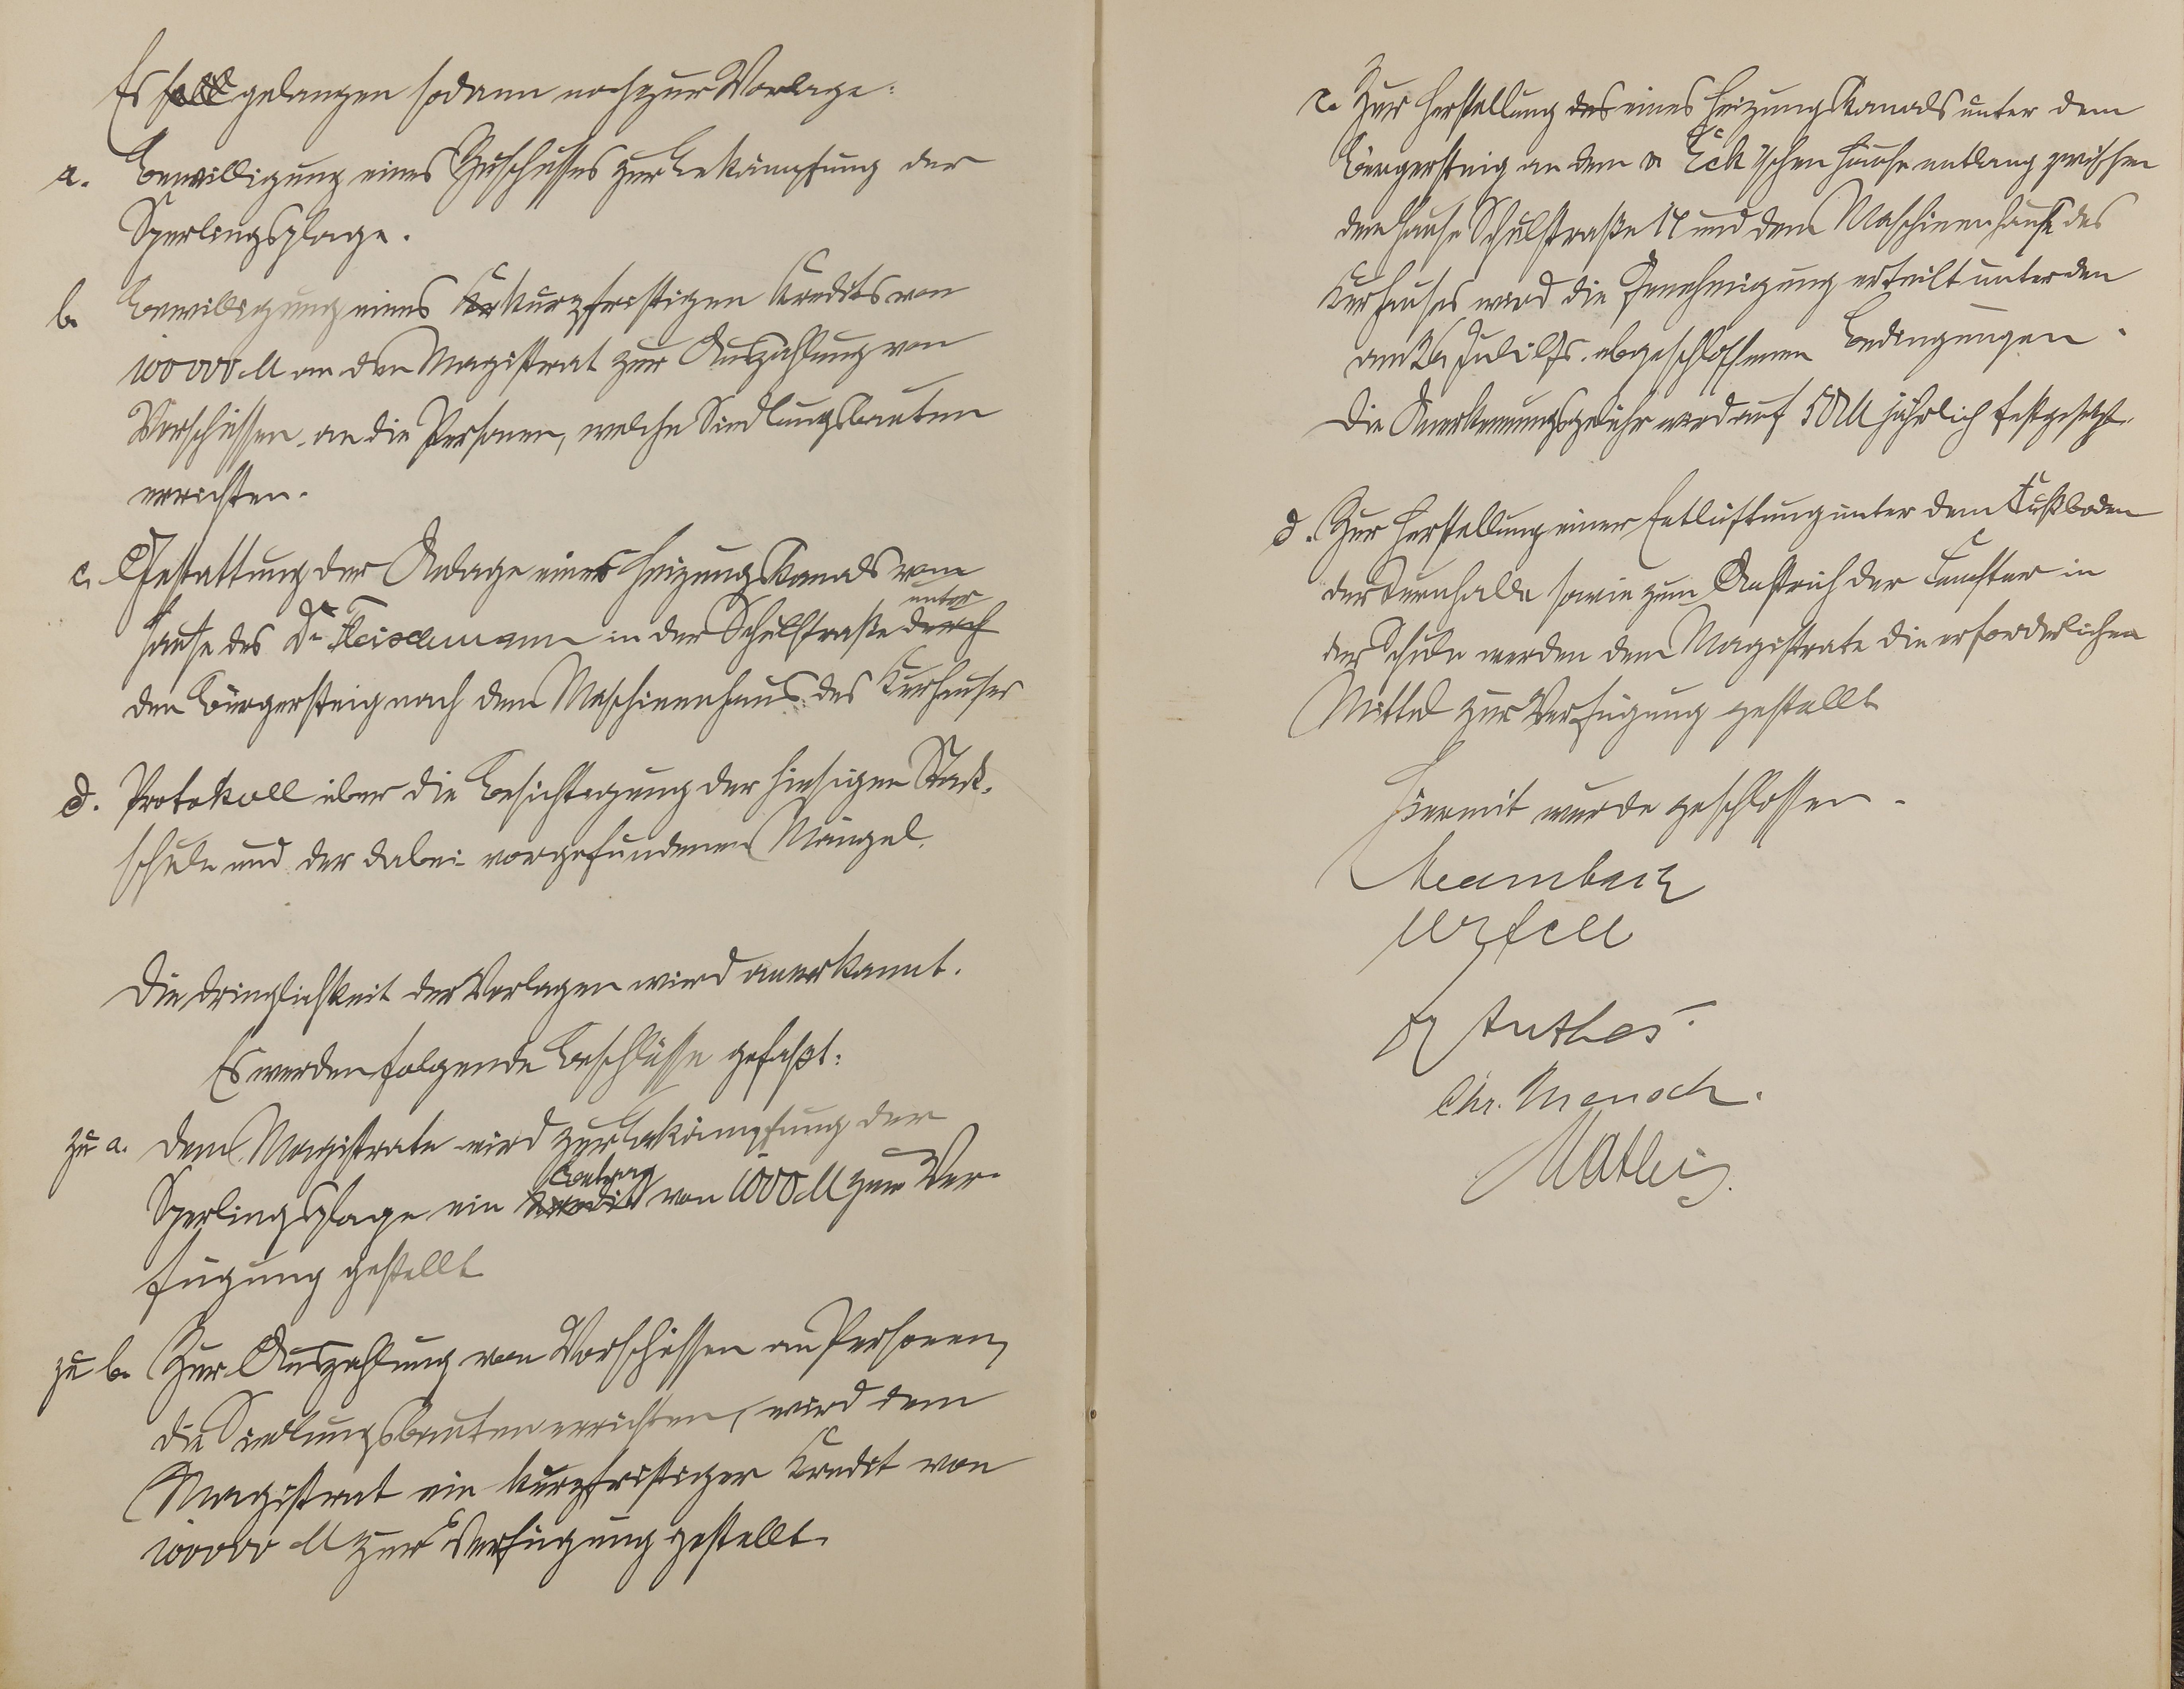 Es gelangen sodann noch zur Vorlage:
a. Bewilligung eines Zuschusses zur Bekämpfung der
Sperlingsplage.
b. Bewilligung eines kurzfristigen Kredits von
100000 M an den Magistrat zur Auszahlung von
Vorschüssen an die Personen, welche Siedlungsbauten
errichten.
c. Gestattung der Anlage eines Heizungskanals vom
Hause des Dr. Fleischmann in der Schulstraße unter
den Bürgersteig nach dem Maschinenhaus des Kurhauses
d. Protokoll über die Besichtigung der hiesigen Stadt-
schule und der dabei vorgefundenen Mängel.
Die Dringlichkeit der Vorlagen wird anerkannt.
Es werden folgende Beschlüsse gefaßt:
zu a. Dem Magistrate wird zur Bekämpfung der
Sperlingsplage ein Betrag von 1000 M zur Ver-
fügung gestellt
zu b. Zur Auszahlung von Vorschüssen an Personen,
die Siedlungsbauten errichten, wird dem
Magistrat ein kurzfristiger Kredit von
100000 M zur Verfügung gestellt.
c. Zur Herstellung eines Heizungskanals unter dem
Bürgersteig an dem Eck'schen Hause entlang zwischen
dem Hause Schulstraße 14 und dem Maschinenhause des
Kurhauses wird die Genehmigung erteilt unter den
am 26 Juli lfs. abgeschlossenen Bedingungen.
Die Anerkennungsgebühr wird auf 50 M jährlich festgesetzt.
d. Zur Herstellung einer Entlüftung unter dem Fußboden
der Turnhalle sowie zum Anstrich der Fenster in
der Schule werden dem Magistrate die erforderlichen
Mittel zur Verfügung gestellt
Hiermit wurde geschlossen.
Anthes.
Chr. Mensch.
Mathis.